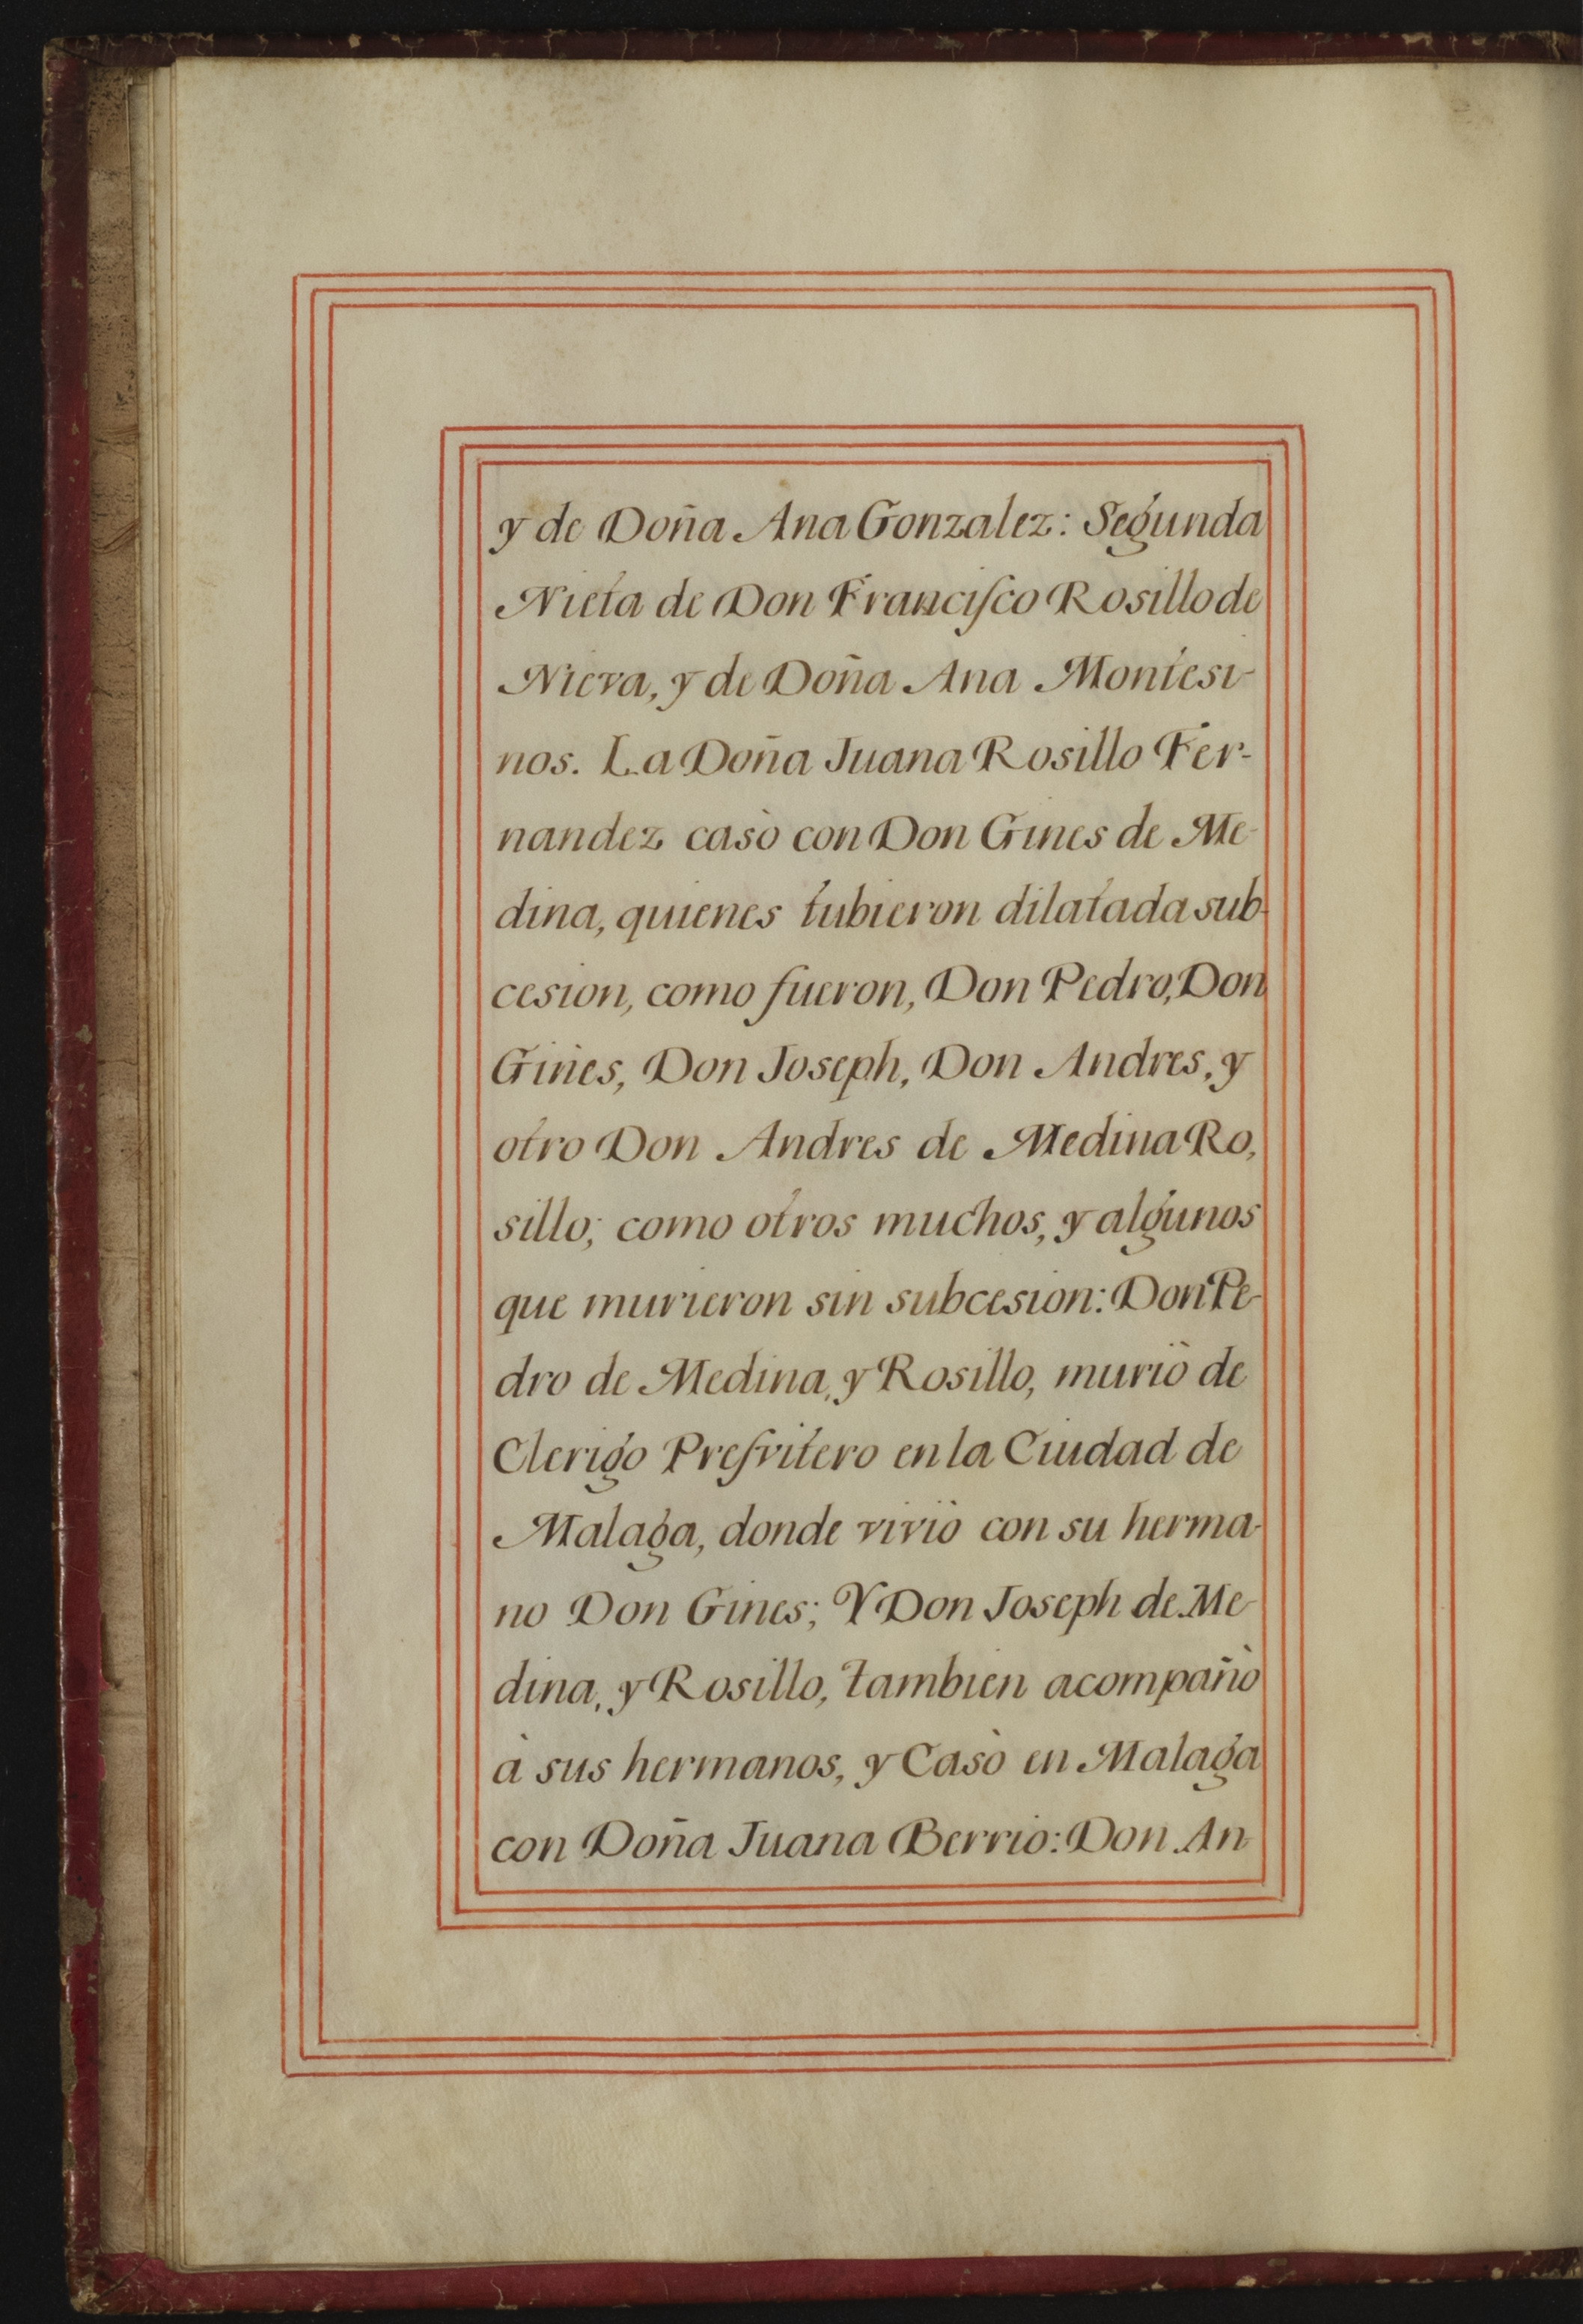 y de Doña Ana Gonzalez: Segunda
Nieta de Don Franciſco Rosillo de
Nieva, y de Doña Ana Montesi-
nos. La Doña Juana Rosillo Fer-
nandez casò con Don Gines de Me-
dina, quienes tubieron dilatada sub-
cesion, como fueron, Don Pedro, Don
Gines, Don Joseph, Don Andres, y
otro Don Andres de Medina Ro,
sillo; como otros muchos, y algunos
que murieron sin subcesion: Don Pe-
dro de Medina, y Rosillo, muriò de
Clerigo Preſvitero en la Ciudad de
Malaga, donde viviò con su herma-
no Don Gines; Y Don Joseph de Me-
dina, y Rosillo, tambien acompañò
à sus hermanos, y Casò en Malaga
con Doña Juana Berrio: Don An-